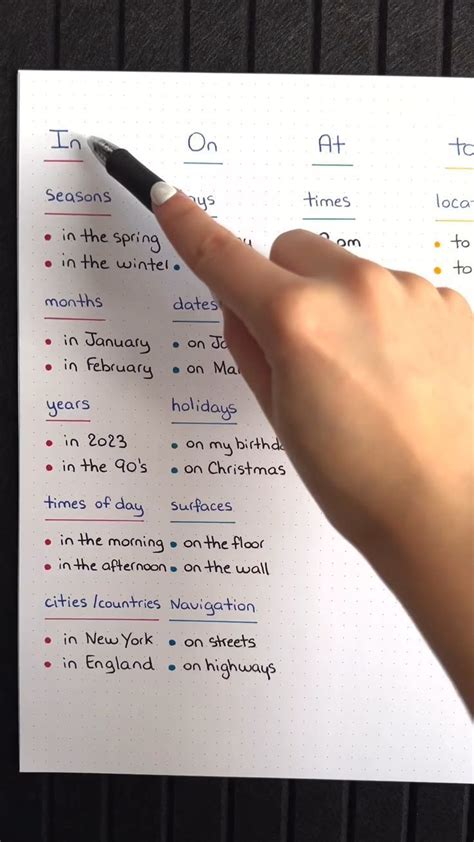 In
seasons
• in the spring
• in the winter
months
• in January
• in February
years
• in 2023
• in the 90's
times of day
• in the morning
• in the afternoon
cities/countries
• in New York
• in England
On
dates
• on
• on
holidays
• on my
• on Christmas
surfaces
• on the floor
• on the wall
Navigation
• on streets
• on highways
At
times
pm
to
• to
• to